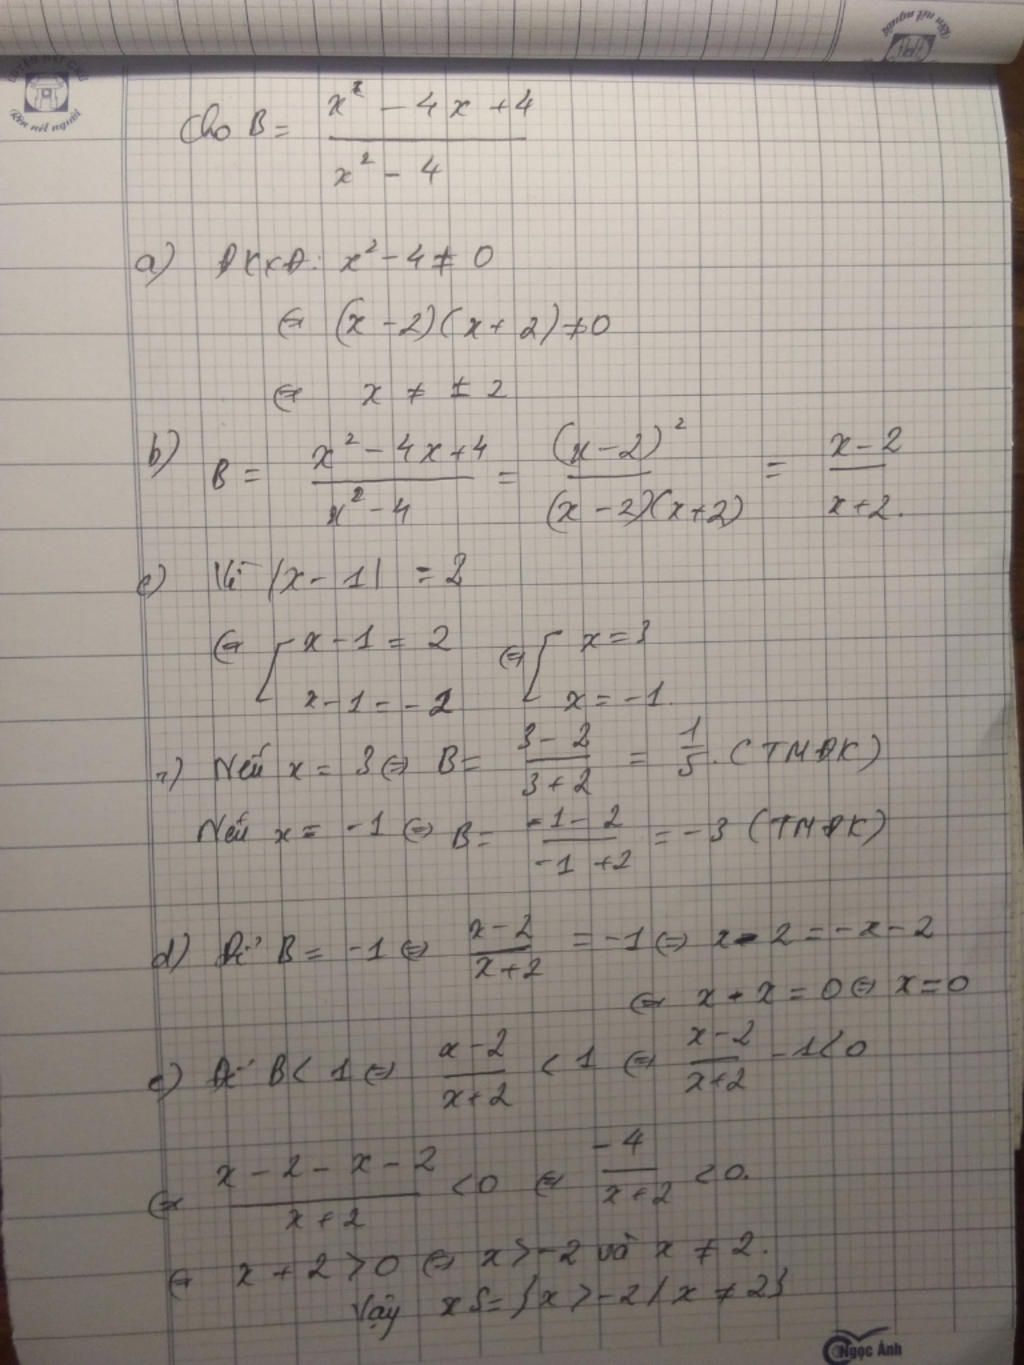 Nét người
Rèn nết người
Cho B = \frac{x^2 - 4x + 4}{x^2 - 4}
a) ĐKXĐ: x^2 - 4 ≠ 0
⇔ (x - 2)(x + 2) ≠ 0
⇔ x ≠ ± 2
b) B = \frac{x^2 - 4x + 4}{x^2 - 4} = \frac{(x - 2)^2}{(x - 2)(x + 2)} = \frac{x - 2}{x + 2}.
c) Vì |x - 1| = 2
⇔ [ x - 1 = 2 ; x - 1 = -2 ⇔ [ x = 3 ; x = -1.
Nếu x = 3 ⇔ B = \frac{3 - 2}{3 + 2} = \frac{1}{5}. (TMĐK)
Nếu x = -1 ⇔ B = \frac{-1 - 2}{-1 + 2} = -3 (TMĐK)
d) Để B = -1 ⇔ \frac{x - 2}{x + 2} = -1 ⇔ x - 2 = -x - 2
⇔ x + x = 0 ⇔ x = 0
e) Để B < 1 ⇔ \frac{x - 2}{x + 2} < 1 ⇔ \frac{x - 2}{x + 2} - 1 < 0
⇔ \frac{x - 2 - x - 2}{x + 2} < 0 ⇔ \frac{-4}{x + 2} < 0.
⇔ x + 2 > 0 ⇔ x > -2 và x ≠ 2.
Vậy x S = {x > -2 / x ≠ 2}
Ngọc Ánh